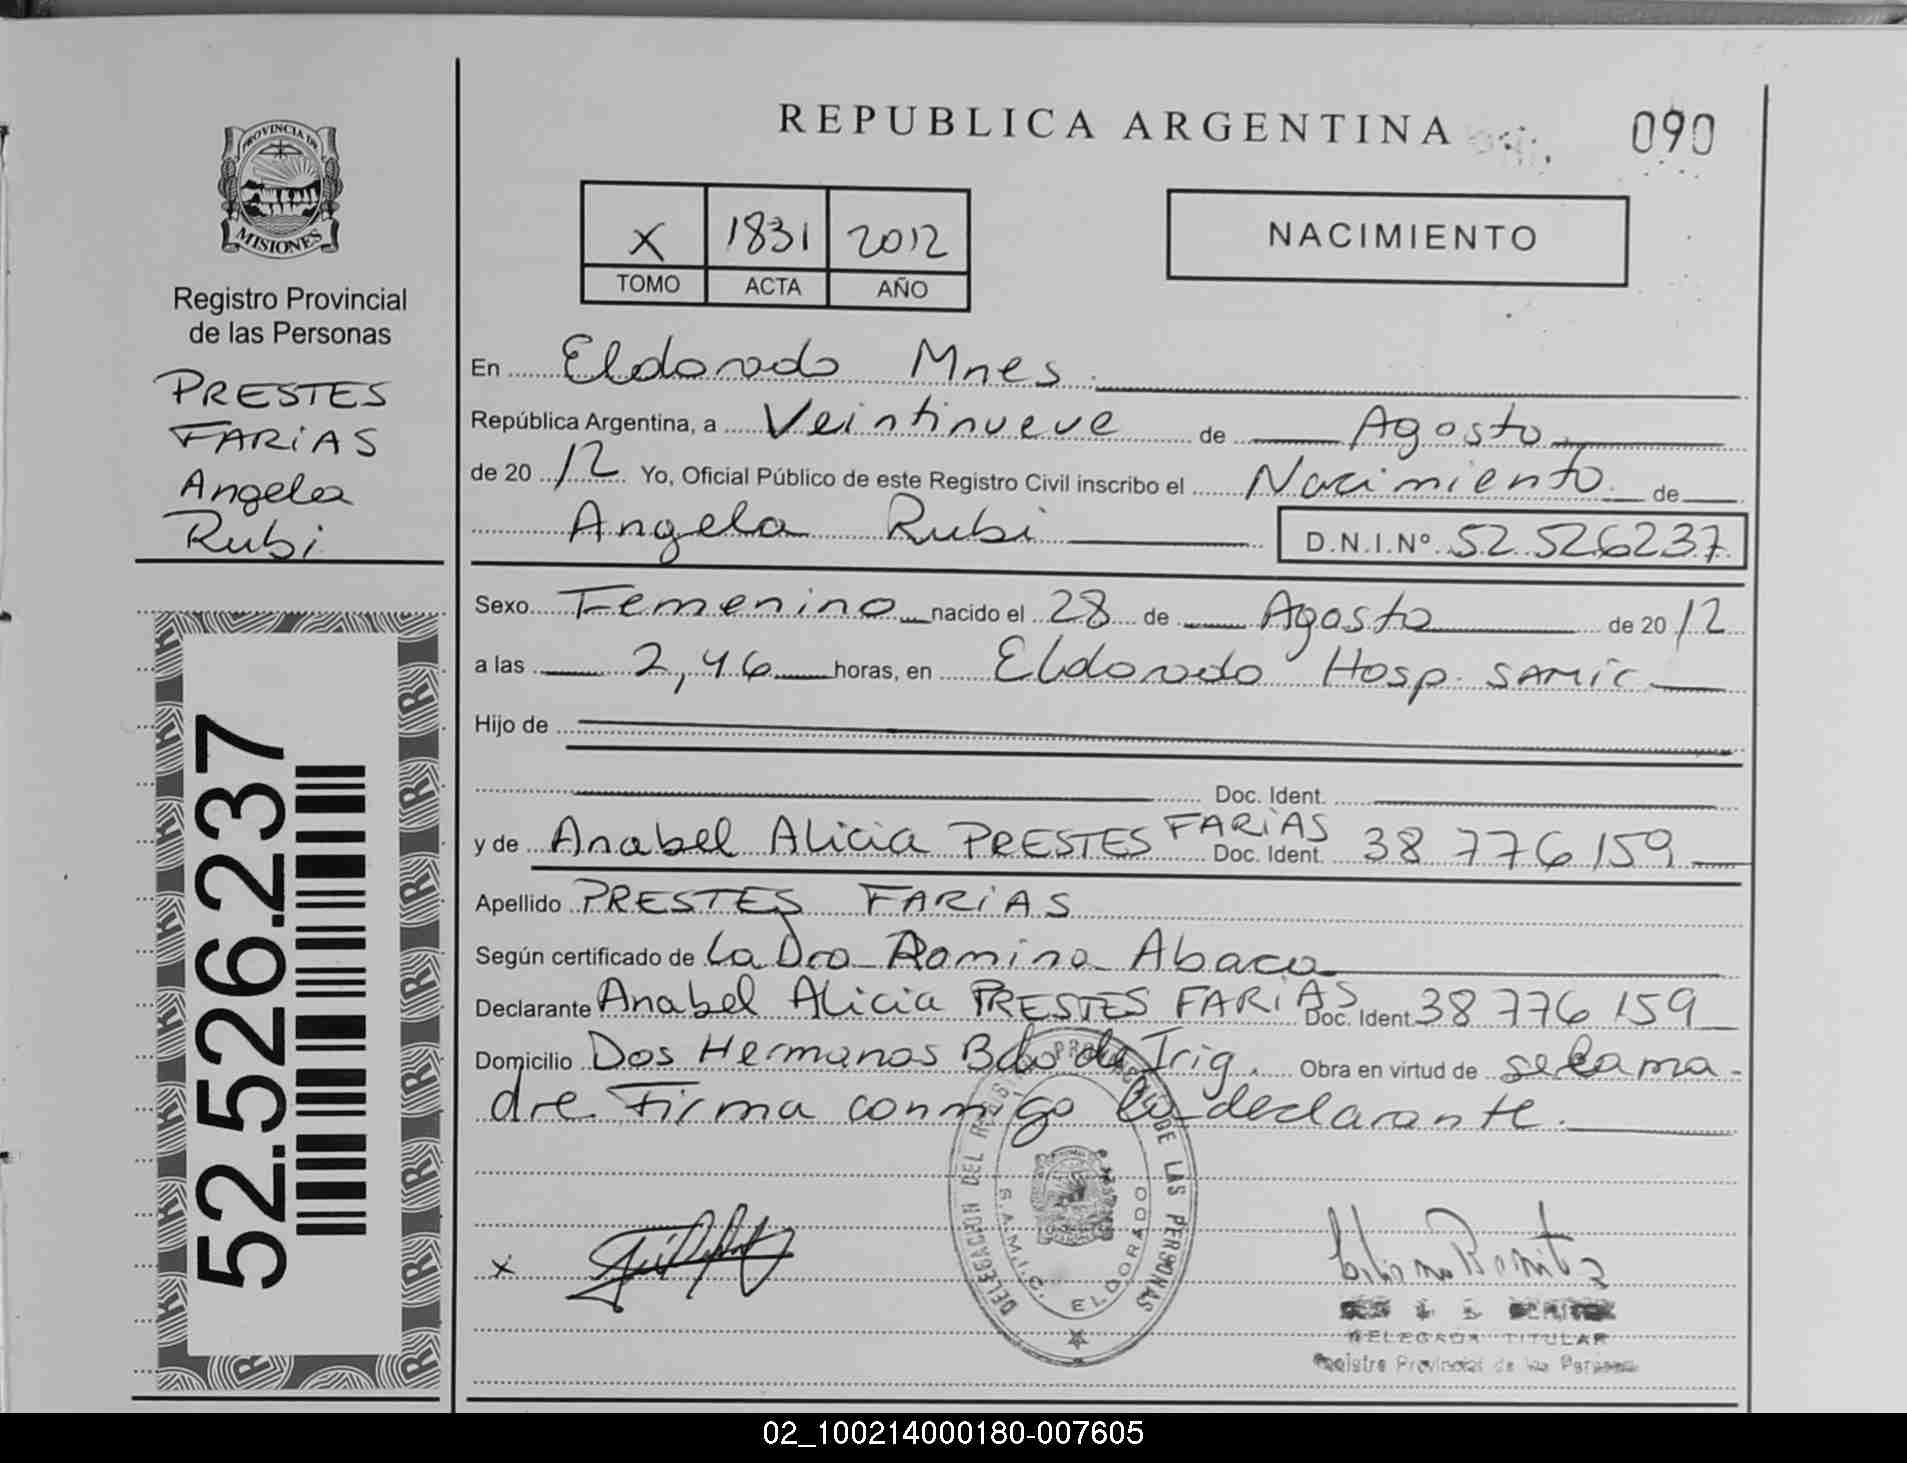 PROVINCIA DE
MISIONES
Registro Provincial
de las Personas
PRESTES
FARIAS
Angela
Rubi
52.526.237
REPUBLICA ARGENTINA
090
X 1831 2012
TOMO ACTA AÑO
NACIMIENTO
En Eldorado Mnes.
República Argentina, a Veintinueve de Agosto
de 20 12 Yo, Oficial Público de este Registro Civil inscribo el Nacimiento de
Angela Rubi D.N.I.Nº 52 526237
Sexo Femenino nacido el 28 de Agosto de 20 12
a las 2,46 horas, en Eldorado Hosp. SAMIC
Hijo de
Doc. Ident.
y de Anabel Alicia PRESTES FARIAS Doc. Ident. 38 776 159
Apellido PRESTES FARIAS
Según certificado de La Dra Romina Abaca
Declarante Anabel Alicia PRESTES FARIAS Doc. Ident. 38 776 159
Domicilio Dos Hermanas Bdo de Irig. Obra en virtud de se la ma-
dre. Firma conmigo la declarante.
DELEGACION DEL REGISTRO PROVINCIAL DE LAS PERSONAS
S.A.M.I.C. ELDORADO
x
DELEGADA TITULAR
Registro Provincial de las Personas
02_100214000180-007605